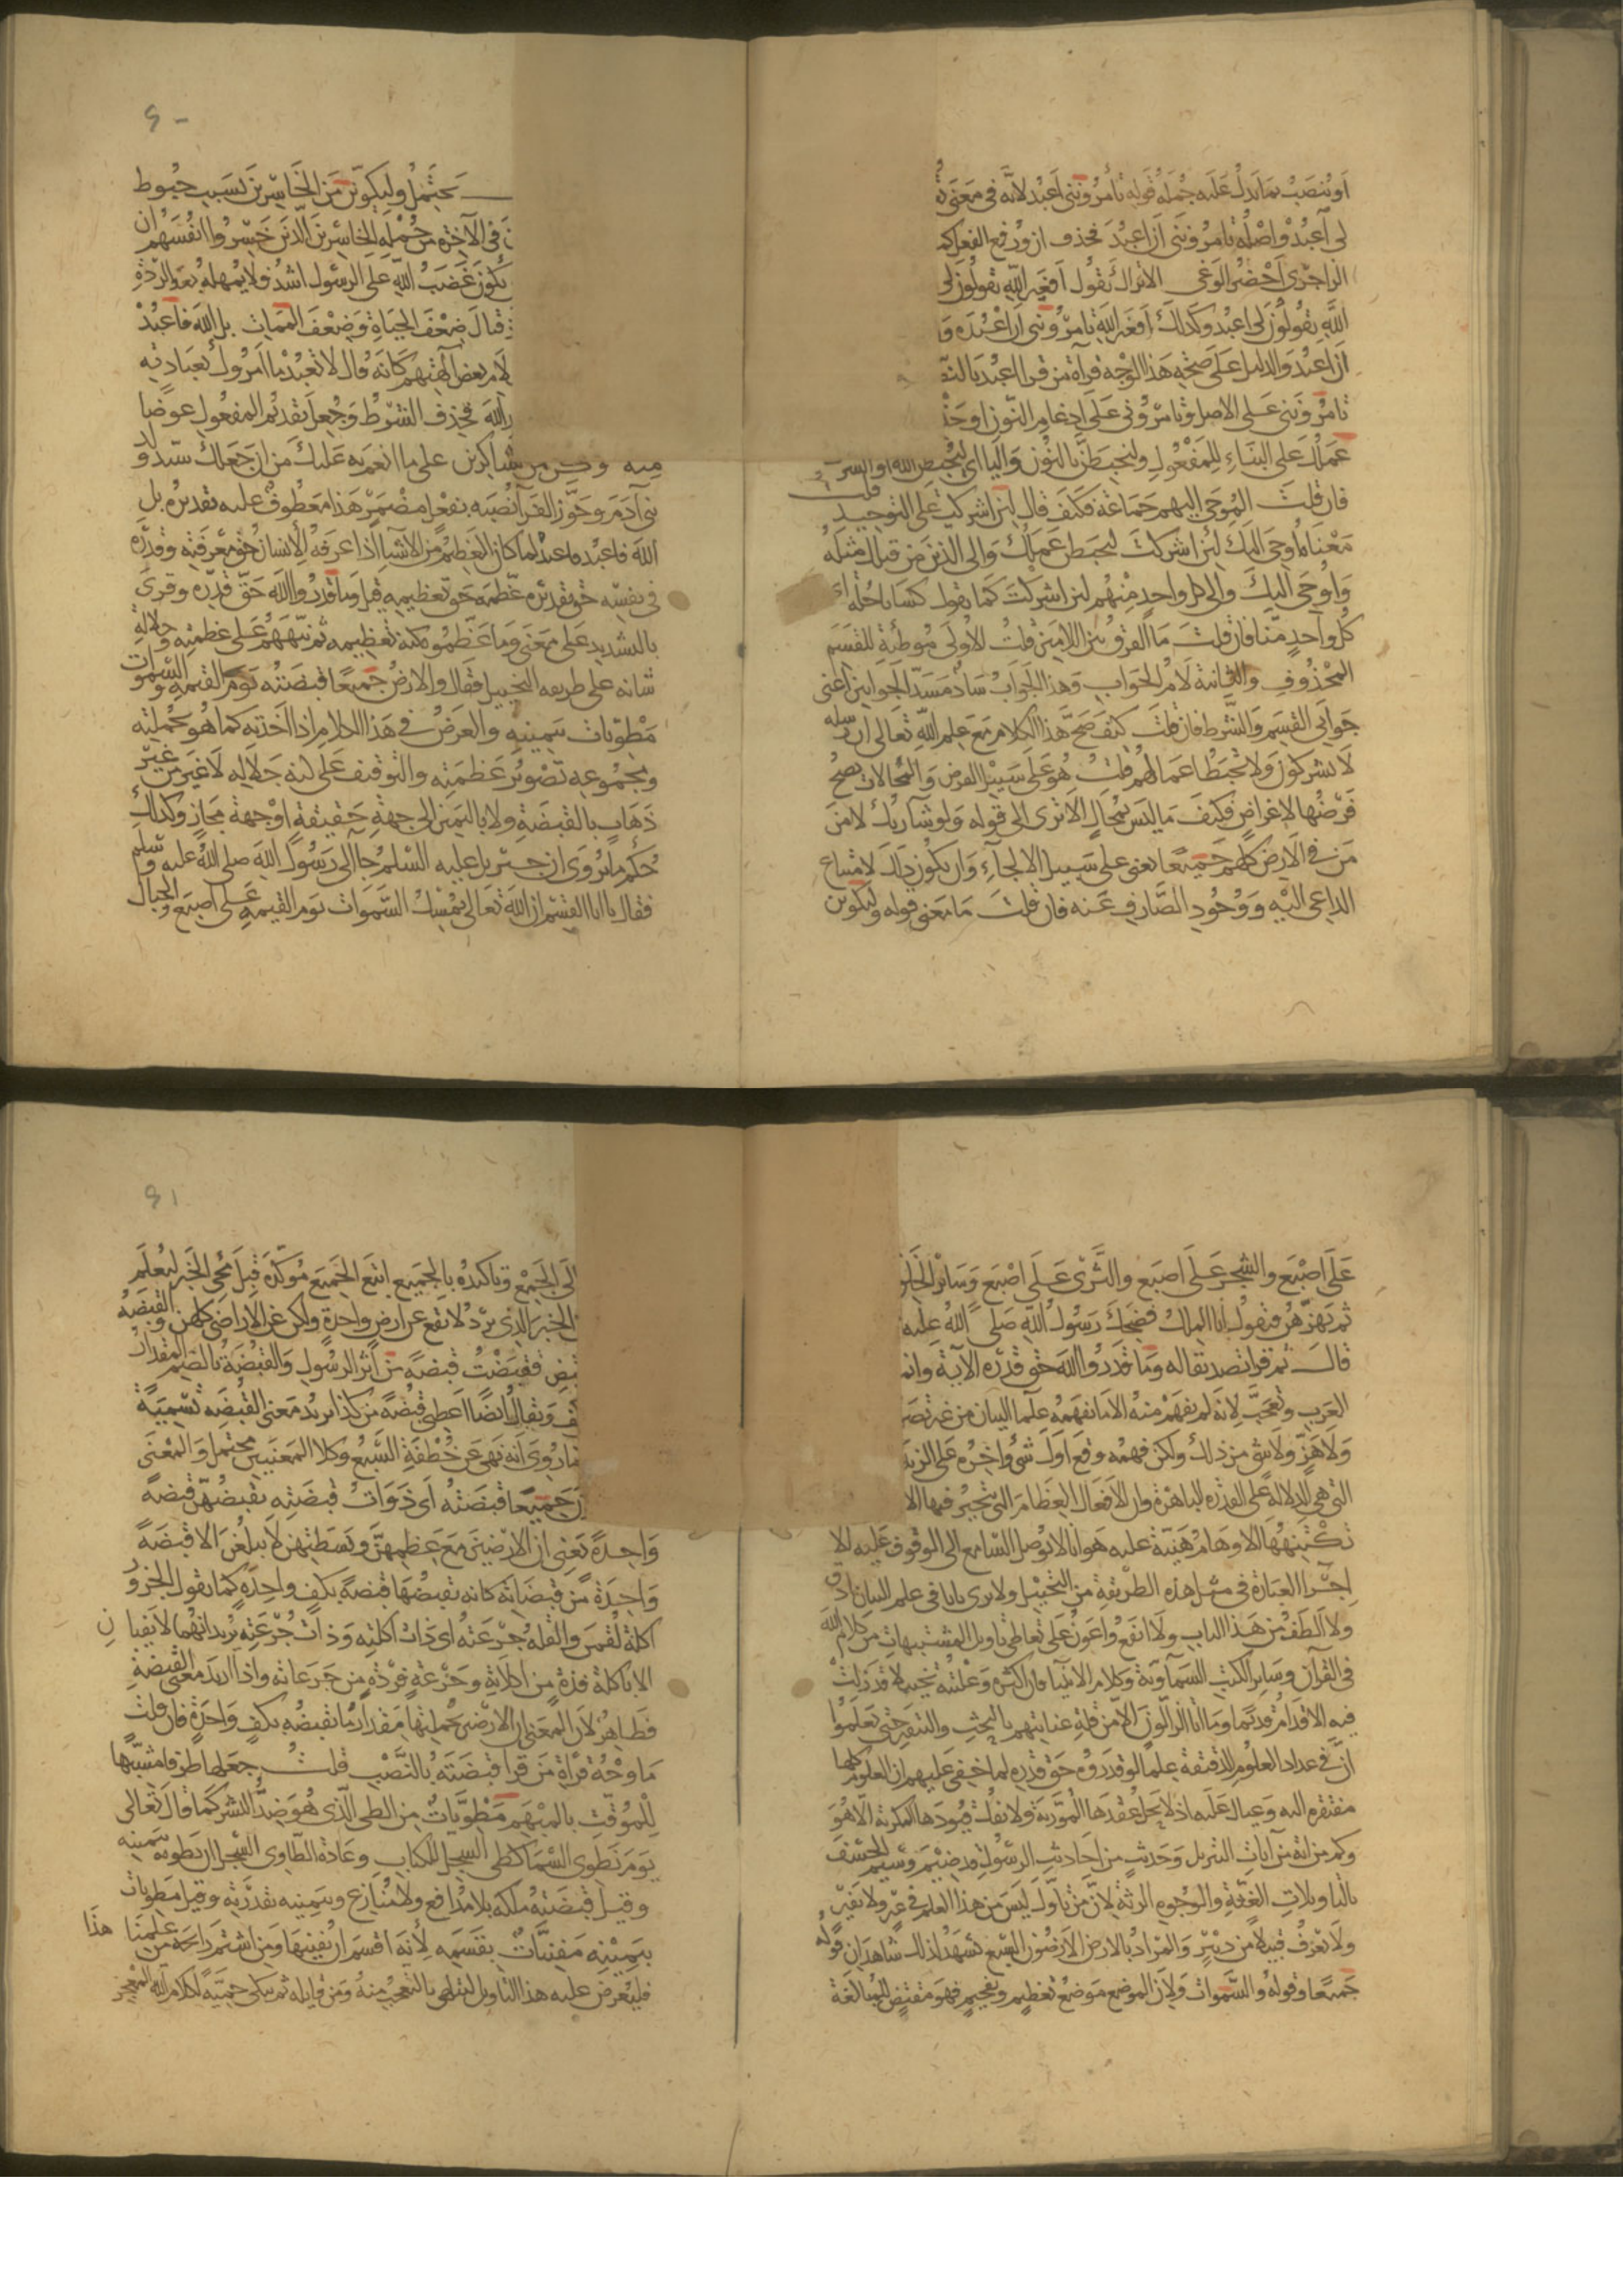 او ينصب بما يدل عليه جملة قوله تأمرونني اعبد لانه في معنى
لي اعبد واصله تامرونني ان اعبد فحذف ان ورفع الفعل كما
الزاجري احضر الوغى الا تراك تقول افغير الله تقولون لي
الله تقولون لي اعبد وكذلك افغير الله تامرونني ان اعبده و
ان اعبد والدليل على صحة هذا الوجه قرآة من قرا اعبد بالنص
تامرونني على الاصل وتامروني على ادغام النون او حذ
عملك على البناء للمفعول ولنحبطن بالنون واليا اي ليحبطن الله او الشرك
فان قلت الموحى اليهم جماعة فكيف قال لئن اشركت على التوحيد قلت
معناه اوحي اليك لئن اشركت ليحبطن عملك والى الذين من قبلك مثله
واوحي اليك والى كل واحد منهم لئن اشركت كما تقول كسانا حلة اي
كل واحد منا فان قلت ما الفرق بين اللامين قلت الاولى موطئة للقسم
المحذوف والثانية لام الجواب وهذا الجواب ساد مسد الجوابين اعني
جوابي القسم والشرط فان قلت كيف صح هذا الكلام مع علم الله تعالى ان رسله
لا يشركون ولا تحبط اعمالهم قلت هو على سبيل الفرض والمحالات يصح
فرضها لاغراض فكيف ما ليس بمحال الا ترى الى قوله ولو شآ ربك لامن
من في الارض كلهم جميعا يعني على سبيل الالجآء وان يكون ذلك لامتناع
الداعي اليه ووجود الصارف عنه فان قلت ما معنى قوله ولتكونن
٩٠
يحتمل ولتكونن من الخاسرين بسبب حبوط
في الآخرة من جملة الخاسرين الذين خسروا انفسهم ان
يكون غضب الله على الرسول اشد فلا يمهله بعد الردة
قبال ضعف الحياة وضعف الممات بل الله فاعبد
لامر بعض آلهتهم كانه قال لا تعبد ما امروك بعبادته
الله فحذف الشرط وجعل تقديم المفعول عوضا
منه وكن من الشاكرين على ما انعم به عليك من ان جعلك سيد ولد
بني آدم وجوز الفرآ نصبه بفعل مضمر هذا معطوف عليه تقديره بل
الله فاعبد فاعبد لما كان العظيم من الاشيا اذا عرفه الانسان حق معرفته وقدره
في نفسه حق تقديره عظمه حق تعظيمه قيل وما قدروا الله حق قدره وقرئ
بالتشديد على معنى وما عظموه كنه تعظيمه ثم نبههم على عظمته وجلالة
شانه على طريقه التخييل فقال والارض جميعا قبضته يوم القيمه والسموات
مطويات بيمينه والغرض في هذا الكلام اذا اخذته كما هو بجملته
ومجموعه تصوير عظمته والتوقيف على كنه جلاله لا غير من غير
ذهاب بالقبضة ولا باليمين الى جهة حقيقة او جهة مجاز وكذلك
حكم ما يروى ان جبريل عليه السلم جا الى رسول الله صلى الله عليه وسلم
فقال يا ابا القسم ان الله تعالى يمسك السموات يوم القيمه على اصبع والجبال
على اصبع والشجر على اصبع والثرى على اصبع وسائر الخلق
ثم يهزهن فيقول انا الملك فضحك رسول الله صلى الله عليه
قال ثم قرا تصديقا له وما قدروا الله حق قدره الآية وانما
العرب وتعجب لانه لم يفهم منه الا ما يفهمه علما البيان من غير تصو
ولا هز ولا شي من ذلك ولكن فهمه وقع اول شئ وآخره على الزبدة
التي هي الدلالة على القدره الباهرة وان الافعال العظام التي تتحير فيها الا
تكتنهها الاوهام هينة عليه هوانا لا يوصل السامع الى الوقوف عليه الا
اجرا العبارة في مثل هذه الطريقة من التخييل ولا ترى بابا في علم البيان ادق
ولا الطف من هذا الباب ولا انفع واعون على تعاطي تاويل المشتبهات من كلام الله
في القرآن وسائر الكتب السماوية وكلام الانبيا فان اكثره وعليته تخييلات قد زلت
فيه الاقدام قديما وما اتى الزالون الا من قلة عنايتهم بالبحث والتنقير حتى تعلموا
ان في عداد العلوم الدقيقة علما لو قدروه حق قدره لما خفي عليهم ان العلوم كلها
مفتقرة اليه وعيال عليه اذ لا يحل عقدها الموربة ولا يفك قيودها المكربة الا هو
وكم من اية من آيات التنزيل وحديث من احاديث الرسول قد ضيم وسيم الخسف
بالتاويلات الغثة والوجوه الرثة لان من تاول ليس من هذا العلم في عير ولا نفير
ولا يعرف قبيلا من دبير والمراد بالارض الارضون السبع يشهد لذلك شاهدان قوله
جميعا وقوله والسموات ولان الموضع موضع تعظيم وتفخيم فهو مقتض للمبالغة
٩١
الى الجمع وتاكيده بالجميع اتبع الجميع مؤكده قبل مجئ الخبر ليعلم
الخبر الذي يرد لا يقع عن ارض واحدة ولكن عن الاراضي كلهن والقبضه
قبض فقبضت قبضة من اثر الرسول والقبضة بالضم المقدار
كف ويقال ايضا اعطني قبضة من كذا يريد معنى القبضه تسمية
ما روي انه نهى عن خطفة السبع وكلا المعنيين محتمل والمعنى
جميعا قبضته اي ذوات قبضته يقبضهن قبضة
واحدة يعني ان الارضين مع عظمهن وبسطتهن لا يبلغن الا قبضة
واحدة من قبضاته كانه يقبضها قبضة بكف واحدة كما تقول الجزور
اكلة لقمن والقلة جرعته اي ذات اكلته وذات جرعته يريد انهما لا يفيان
الا باكلة فذة من اكلاته وجرعة فردة من جرعاته واذا اريد معنى القبضة
فظاهر لان المعنى ان الارضين بجملتها مقدار ما يقبضه بكف واحدة فان قلت
ما وجه قرآة من قرا قبضته بالنصب قلت جعلها ظرفا مشبها
للموقت بالمبهم مطويات من الطي الذي هو ضد النشر كما قال تعالى
يوم نطوي السما كطي السجل للكتاب وعادة الطاوي السجل ان يطويه بيمينه
وقيل قبضته ملكه بلا مدافع ولا منازع وبيمينه بقدرته وقيل مطويات
بيمينه مفنيات بقسمه لانه اقسم ان يفنيها ومن اشتم رايحة من علمنا هذا
فليعرض عليه هذا التاويل ليتلهى بالتعجب منه ومن قايله ثم يبكي حمية لكلام الله المعجز